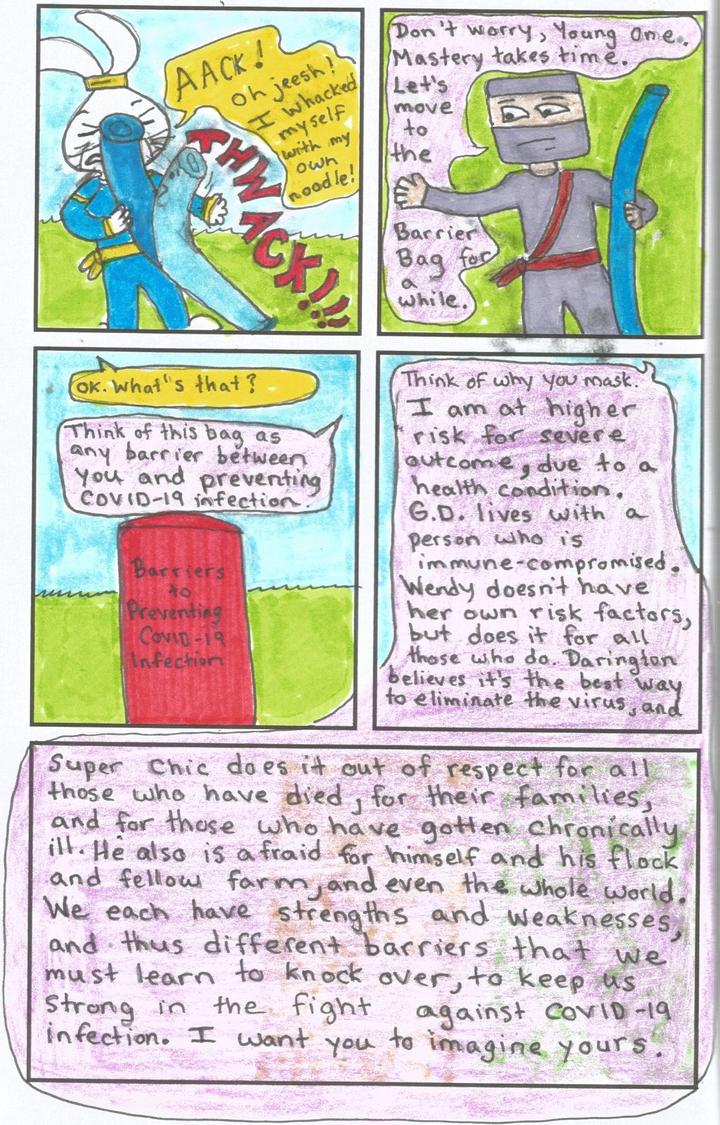 AACK!
Oh jeesh!
I whacked
myself
with my
own
noodle!
THWACK!!!
Don't worry, Young One.
Mastery takes time.
Let's
move
to
the
Barrier
Bag for
a
while.
OK. What"s that?
Think of this bag as
any barrier between
you and preventing
COVID-19 infection.
Barriers
to
Preventing
COVID-19
Infection
Think of why you mask.
I am at higher
risk for severe
outcome, due to a
health condition.
G.D. lives with a
person who is
immune-compromised.
Wendy doesn't have
her own risk factors,
but does it for all
those who do. Darington
believes it's the best way
to eliminate the virus, and
Super Chic does it out of respect for all
those who have died, for their families,
and for those who have gotten chronically
ill. He also is afraid for himself and his flock
and fellow farm, and even the whole world.
We each have strengths and weaknesses,
and thus different barriers that we
must learn to knock over, to keep us
strong in the fight against COVID-19
infection. I want you to imagine yours.